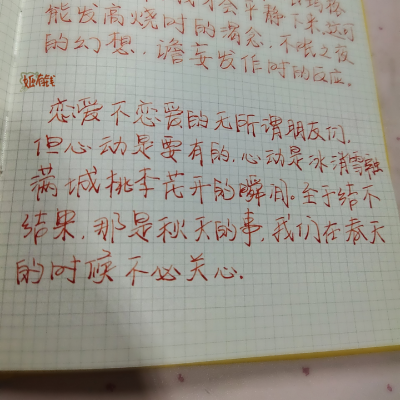 能发高烧时的渴念，不眠之夜
的幻想，谵妄发作时的反应。
恋爱不恋爱的无所谓朋友们，
但心动是要有的，心动是冰消雪融
满城桃李花开的瞬间。至于结不
结果，那是秋天的事，我们在春天
的时候不必关心。